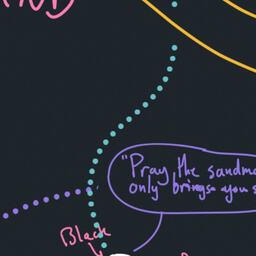 "Pray the sandma
only brings you s
Black